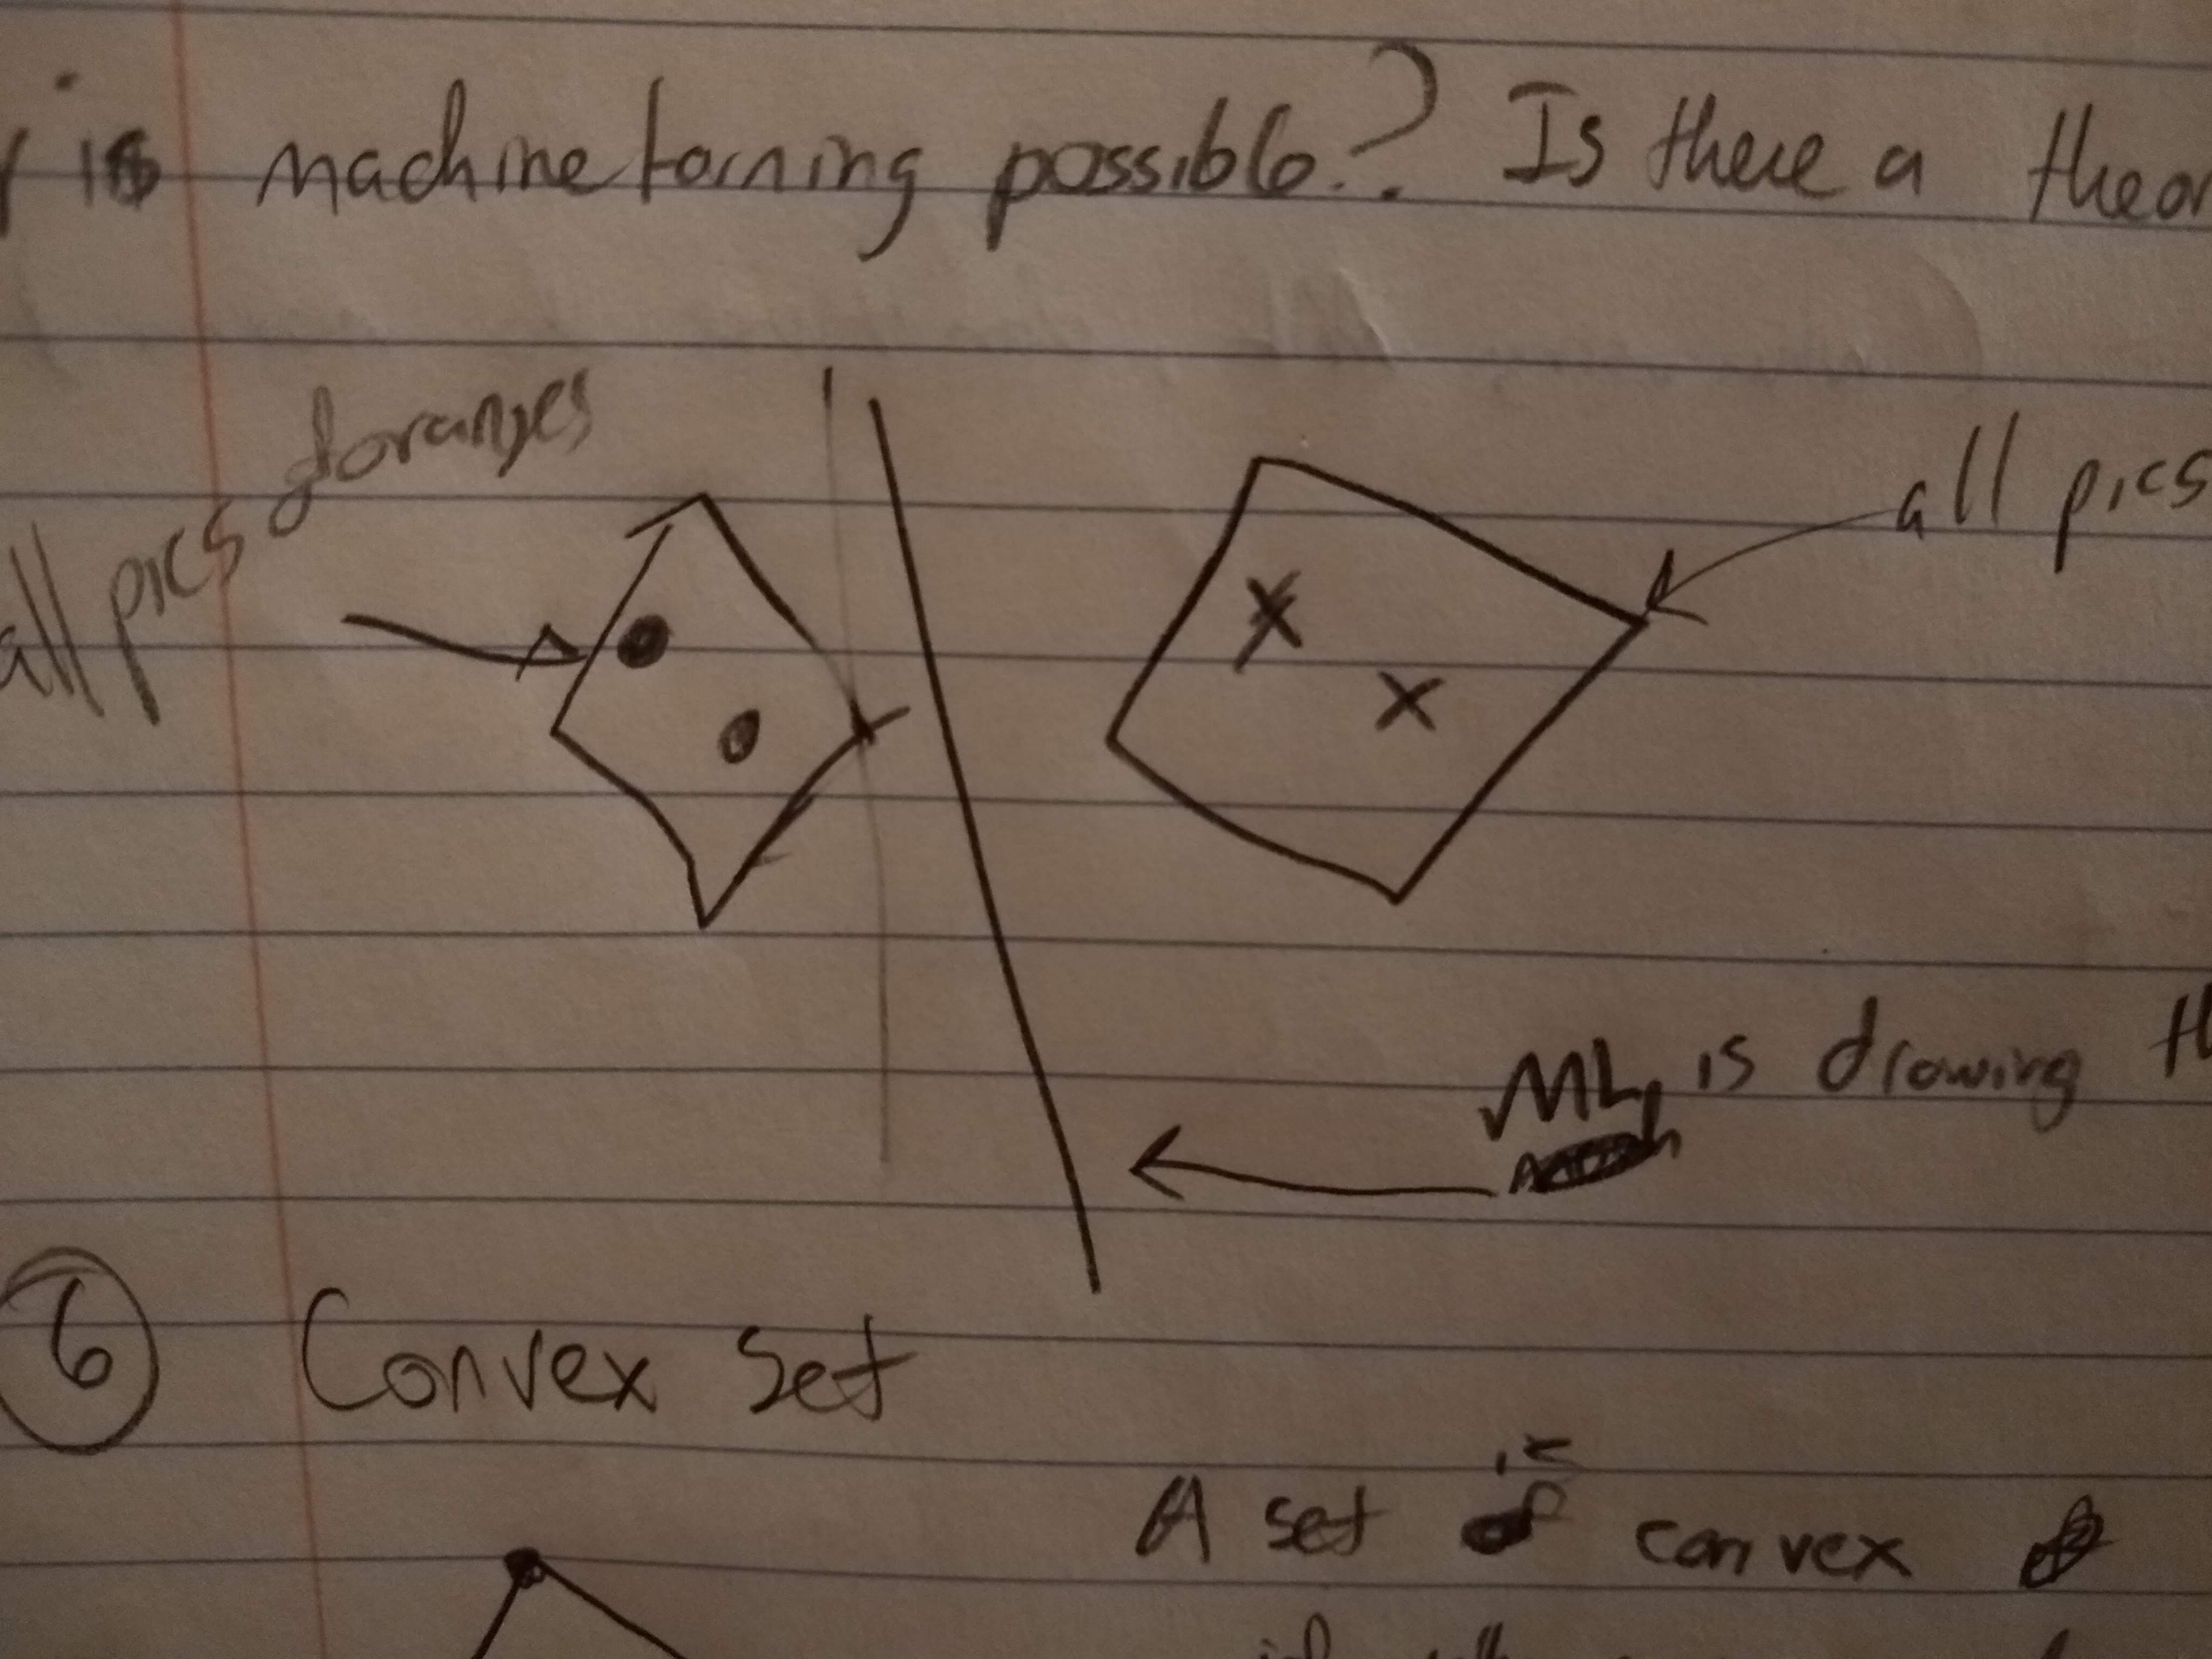 is machine larning possible? Is there a theor
all pics of oranges
all pics
ML is drawing th
6 Convex Set
A set is convex